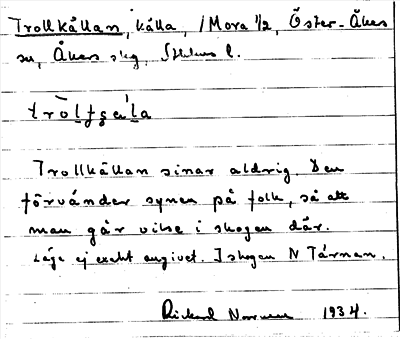 Trollkällan, källa, /Mora 1/2, Öster-Åkers
sn, Åkers skg, Sthlms l.
Trollkällan sinar aldrig. Den
förvänder synen på folk, så att
man går vilse i skogen där.
Läge ej exakt angivet. I skogen N Tärnan.
Rickard 1934.